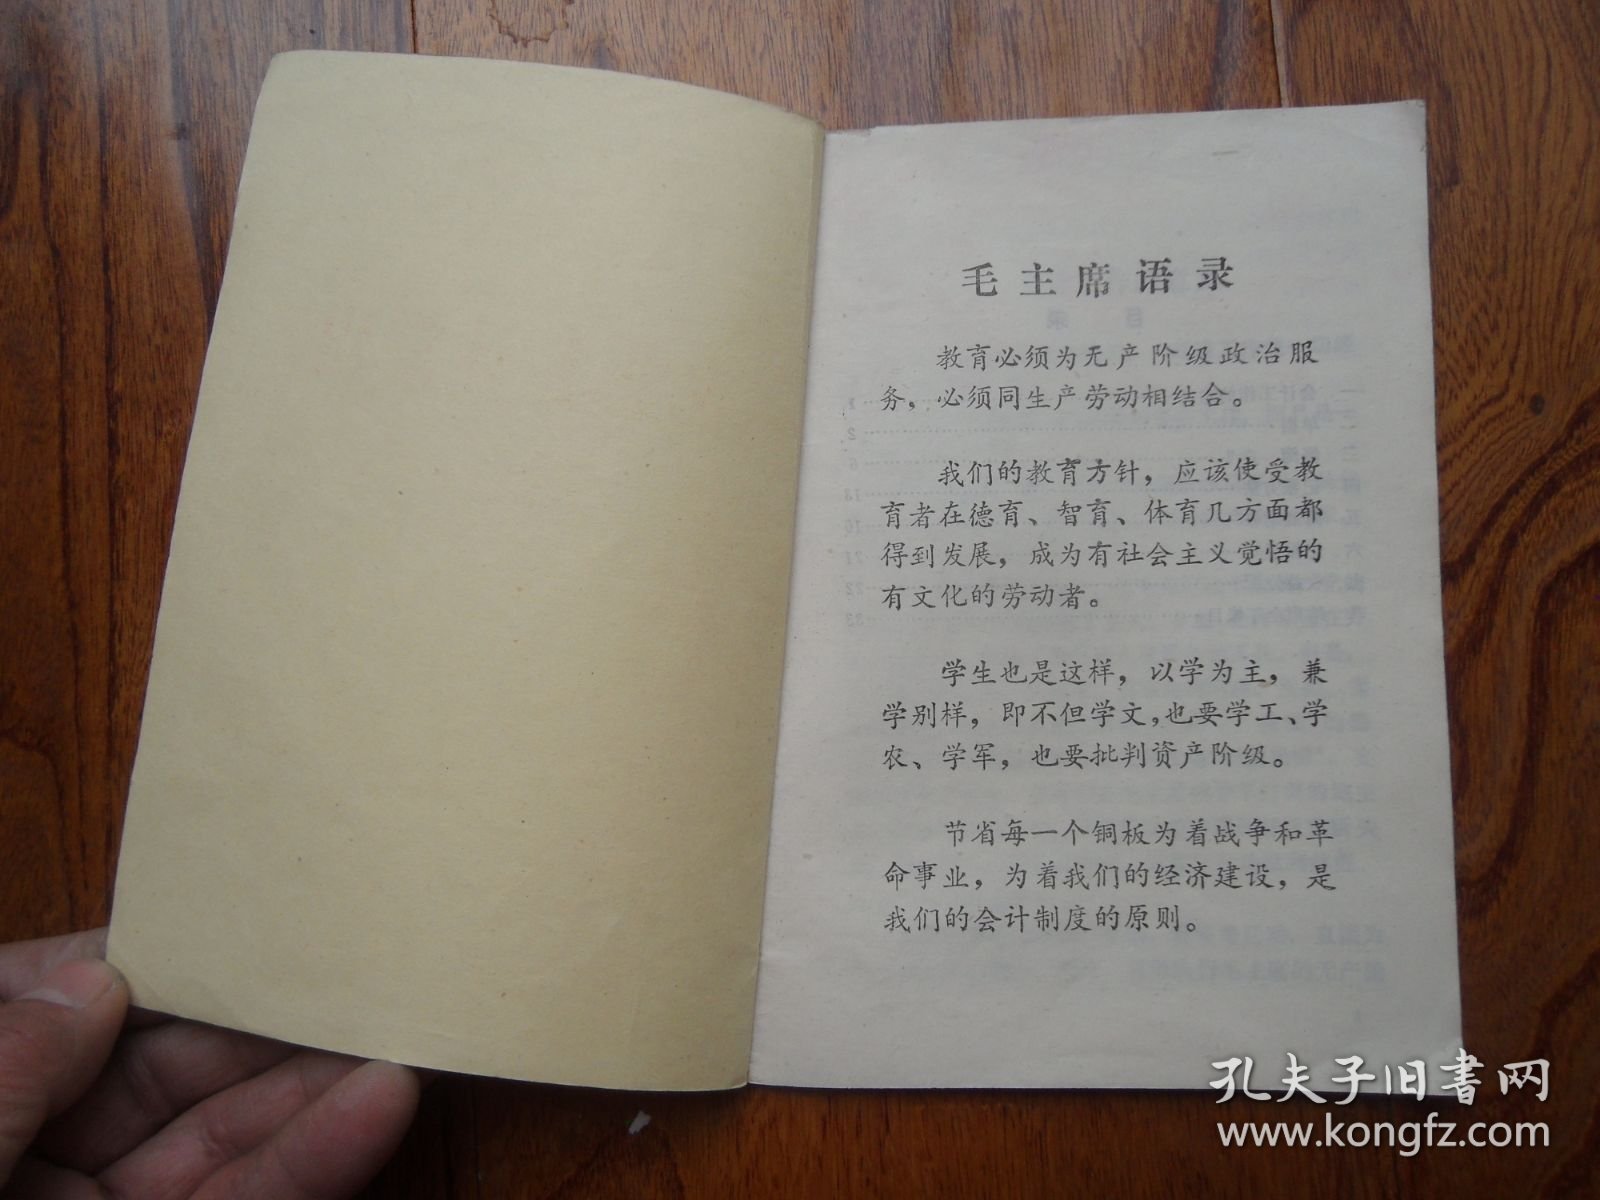 毛主席语录
教育必须为无产阶级政治服
务，必须同生产劳动相结合。
我们的教育方针，应该使受教
育者在德育、智育、体育几方面都
得到发展，成为有社会主义觉悟的
有文化的劳动者。
学生也是这样，以学为主，兼
学别样，即不但学文，也要学工、学
农、学军，也要批判资产阶级。
节省每一个铜板为着战争和革
命事业，为着我们的经济建设，是
我们的会计制度的原则。
孔夫子旧書网
www.kongfz.com